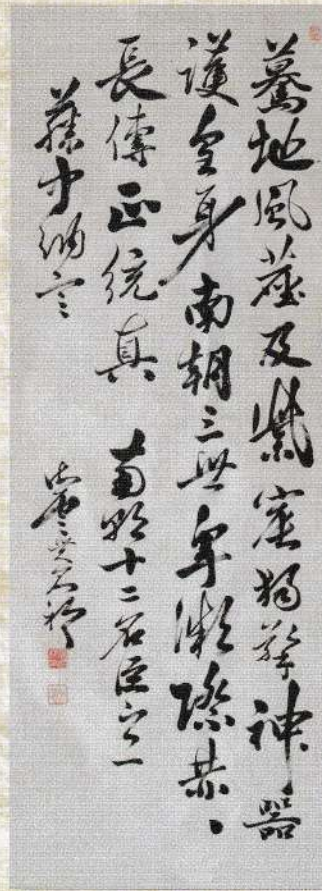 驀地風塵及紫宸獨擎神器
護皇身南朝三世卑微際
長傳正統真 南朝十二名臣之一
藤中納言